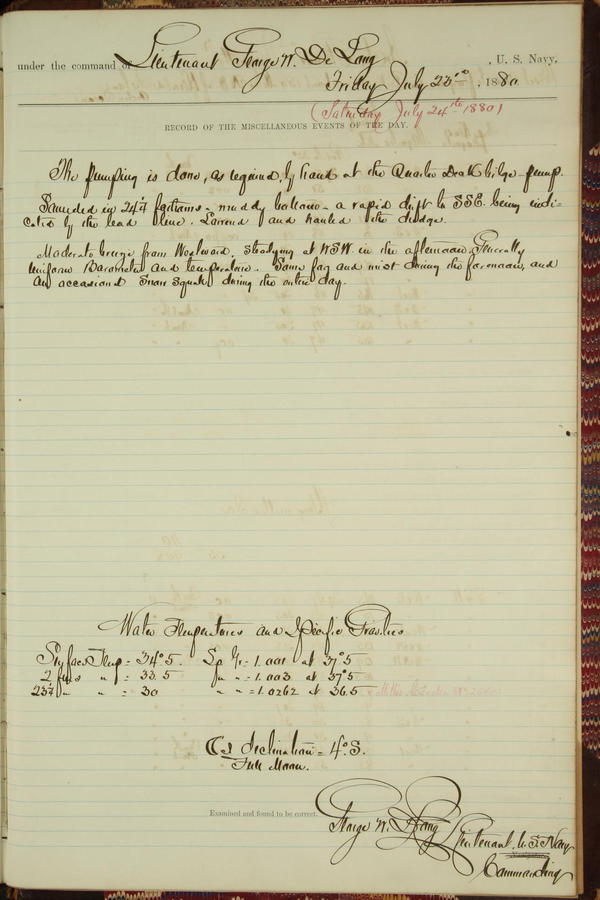 under the command of Lieutenant George W. De Long , U. S. Navy,
Friday July 23rd , 1880
(Saturday July 24th 1880)
RECORD OF THE MISCELLANEOUS EVENTS OF THE DAY.
The pumping is done, as required, by hand at the Quarter Deck bilge-pump.
Sounded in 24½ fathoms - muddy bottom - a rapid drift to SSE. being indi-
cated by the lead line. Lowered and hauled the dredge.
Moderate breeze from Westward, steadying at WSW in the afternoon. Generally
uniform Barometer and temperature. Some fog and mist during the forenoon, and
an occasional snow squall during the entire day.
Water Temperatures and Specific Gravities
Surface Temp = 34°.5. Sp Gr = 1.001 at 37°5
2 fms " = 33.5 " " = 1.003 at 37°5
23½ " " = 30 " " = 1.0262 at 36.5
☾'s declination = 4° S.
Full Moon.
Examined and found to be correct.
George W. De Long Lieutenant, U.S. Navy
Commanding